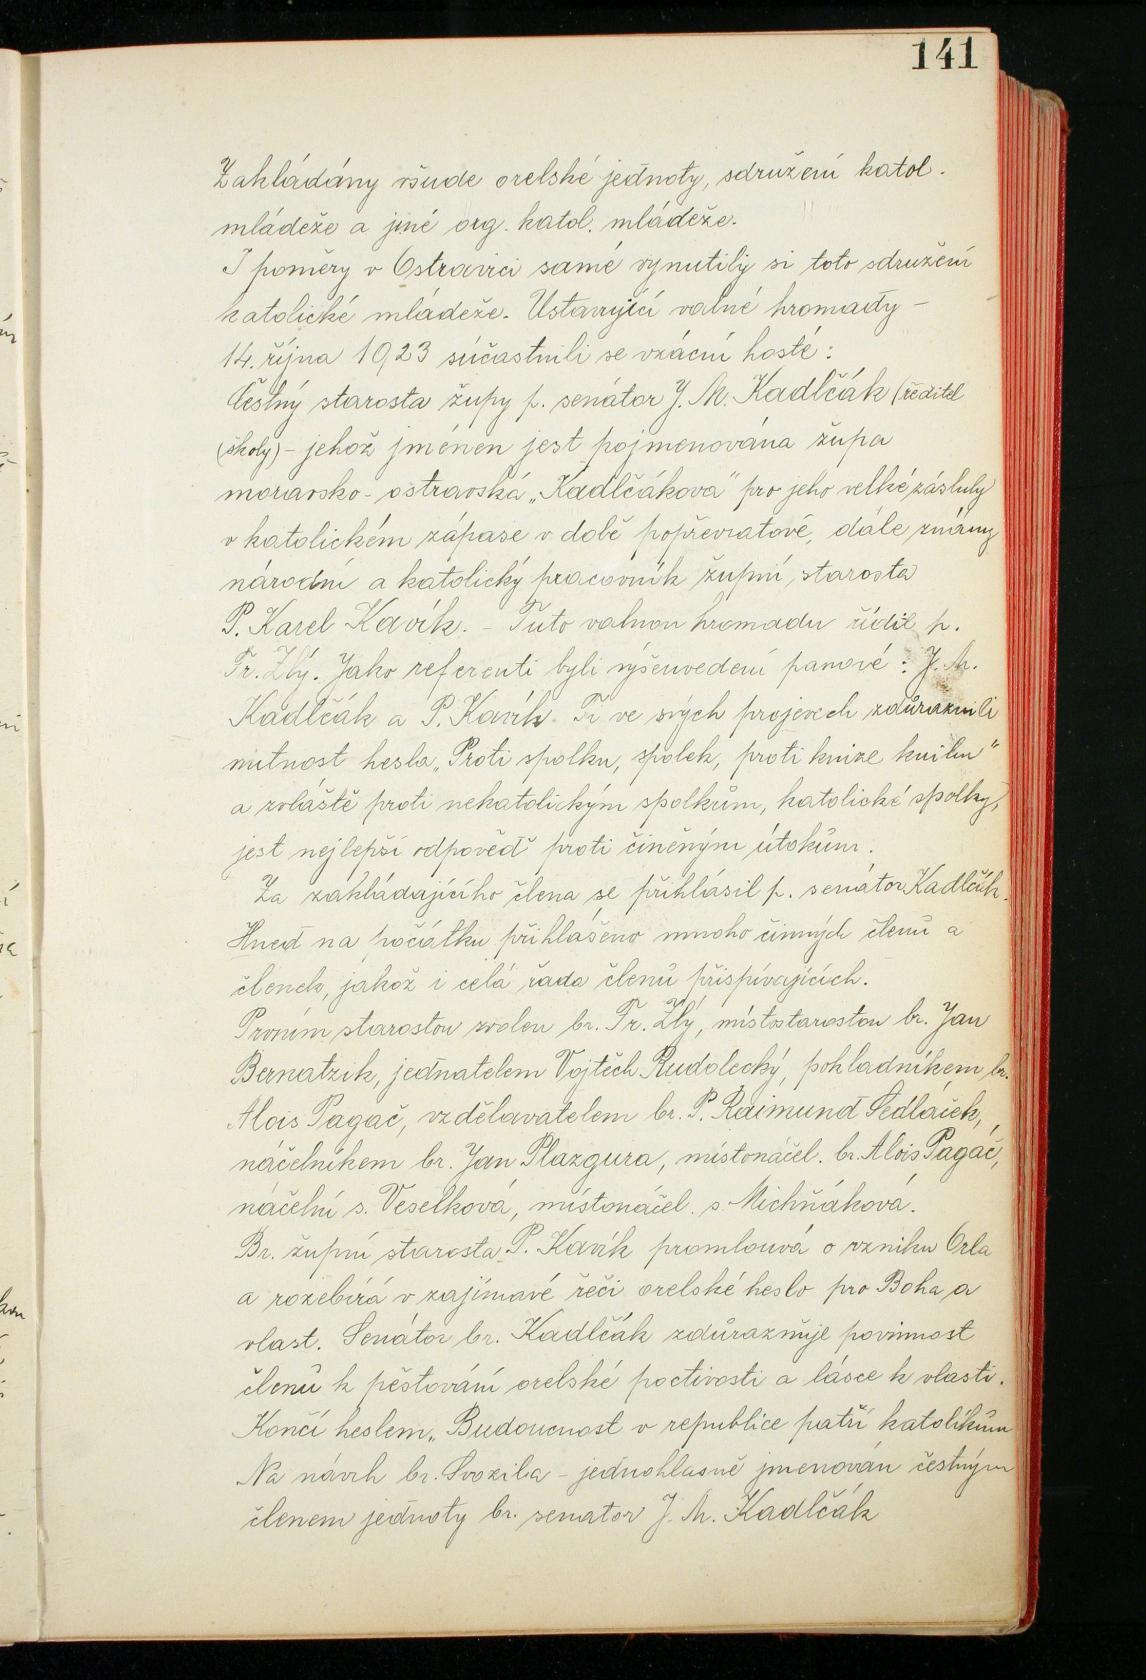 141
Zakládány všude orelské jednoty, sdružení katol.
mládeže a jiné org. katol. mládeže.
I poměry v Ostravici samé vynutily si toto sdružení
katolické mládeže. Ustavující valné hromady –
14. října 1923 súčastnili se vzácní hosté:
Čestný starosta župy p. senátor J. M. Kadlčák (ředitel
(školy) – jehož jménem jest pojmenována župa
moravsko-ostravská „Kadlčákova" pro jeho velké zásluhy
v katolickém zápase v době popřevratové, dále známý
národní a katolický pracovník župní, starosta
P. Karel Kavík. – Tuto valnou hromadu řídil p.
Fr. Zlý. Jako referenti byli výšeuvedení panové: J. M.
Kadlčák a P. Kavík. Ti ve svých projevech zdůraznili
nutnost hesla „Proti spolku, spolek, proti knize knihu"
a zvláště proti nekatolickým spolkům, katolické spolky,
jest nejlepší odpověď proti činěným útokům.
Za zakládajícího člena se přihlásil p. senátor Kadlčák.
Hned na počátku přihlášeno mnoho činných členů a
členek, jakož i celá řada členů přispívajících.
Prvním starostou zvolen br. Fr. Zlý, místostarostou br. Jan
Bernatzik, jednatelem Vojtěch Rudolecký, pokladníkem br.
Alois Pagač, vzdělavatelem br. P. Raimund Sedláček,
náčelníkem br. Jan Plazgura, místonáčel. br. Alois Pagač,
náčelní s. Veselková, místonáčel. s. Michňáková.
Br. župní starosta P. Kavík promlouvá o vzniku Orla
a rozebírá v zajímavé řeči orelské heslo pro Boha a
vlast. Senátor br. Kadlčák zdůrazňuje povinnost
členů k pěstování orelské poctivosti a lásce k vlasti.
Končí heslem „Budoucnost v republice patří katolíkům
Na návrh br. Svozila – jednohlasně jmenován čestným
členem jednoty br. senator J. M. Kadlčák